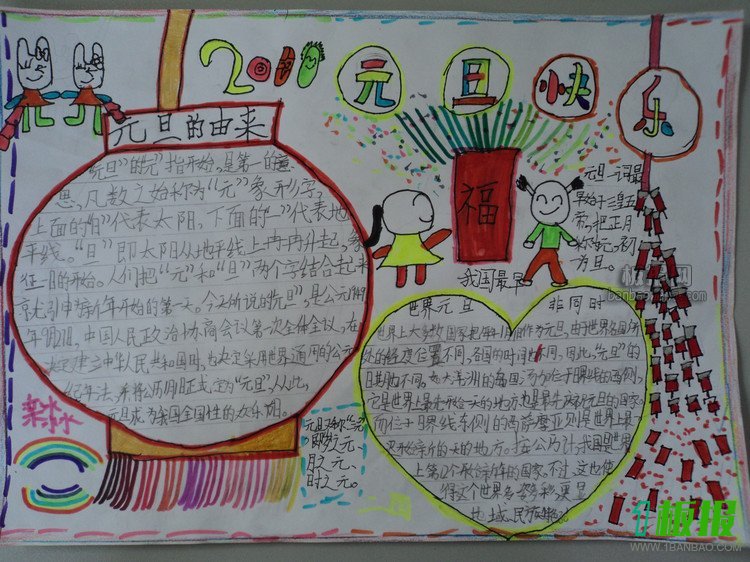 2011 元旦快乐
元旦的由来
“元旦”的“元”指开始,是第一的意
思,凡数之始称为“元”象形字,
上面的“日”代表太阳,下面的“一”代表地
平线。“旦”即太阳从地平线上冉冉升起,象
征一日的开始。人们把“元”和“旦”两个字结合起来
就引申为新年开始的第一天。今天所说的“元旦”,是公元1949
年9月27日,中国人民政治协商会议第一次全体会议,在
决定建立中华人民共和国时,也决定采用世界通用的公元
纪年法,并将公历1月1日正式定为“元旦”从此,
元旦成为我国全国性的欢乐节日。
福
我国最早
元旦一词最
早始于三皇五
帝,把正月
称元,初
为旦。
元旦又称“三元”
即岁之元、
月之元、
时之元。
世界元旦 非同时
世界上大多数国家把每年1月1日作为元旦,由于世界各国所
处的经度位置不同,各国的时间也不同,因此,“元旦”的
日期也不同。如大洋洲的岛国汤加位于日界线的西侧,
它是世界上最先开始一天的地方,也是最先庆祝元旦的国家。
而位于日界线东侧的西萨摩亚则是世界上最
迟开始新的一天的地方。按公历计,我国是世界
上第12个开始新年的国家,不过,这也使
得这个世界多姿多彩,更显
地域、民族
二四
板报网
板报
WWW.1BANBAO.COM